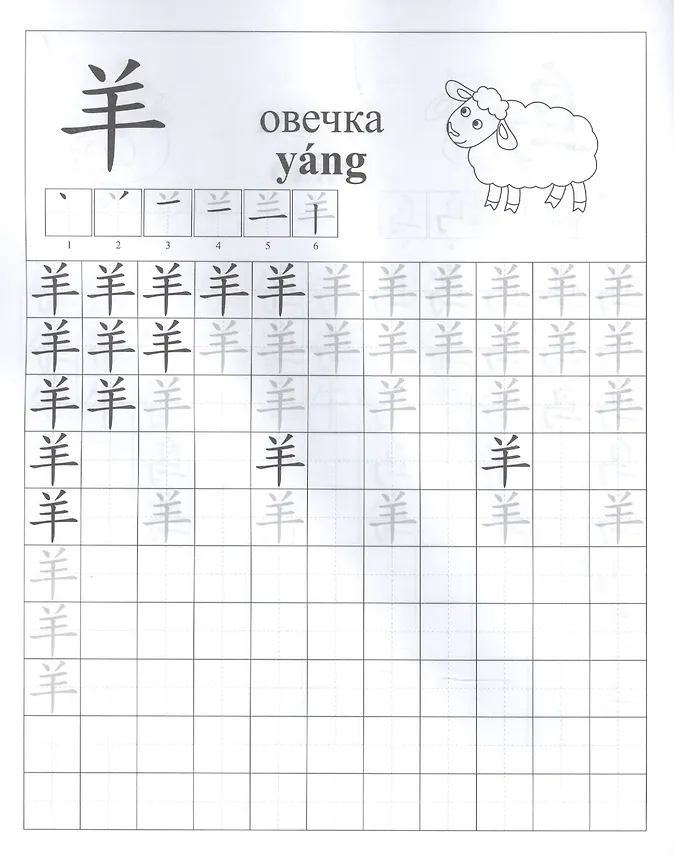 羊
овечка
yáng
1 2 3 4 5 6
羊 羊 羊 羊 羊 羊 羊 羊 羊 羊 羊
羊 羊 羊 羊 羊 羊 羊 羊 羊 羊 羊
羊 羊 羊 羊 羊 羊 羊
羊 羊 羊
羊 羊 羊 羊 羊 羊
羊
羊
羊